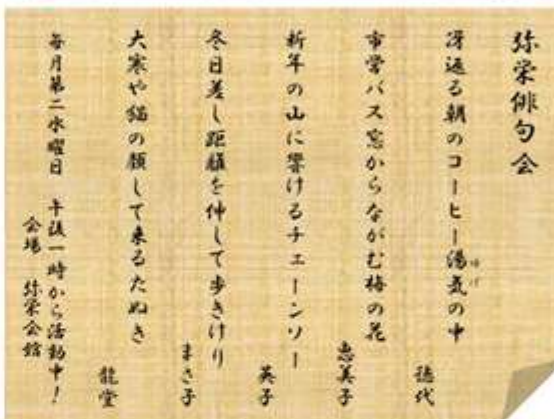 弥栄俳句会
冴返る朝のコーヒー湯気の中
ゆげ
徳代
市営バス窓からながむ梅の花
恵美子
新年の山に響けるチェーンソー
英子
冬日差し距離を伸して歩きけり
まさ子
大寒や猫の顔して来るたぬき
龍堂
毎月第二水曜日 午後一時から活動中！
会場 弥栄会館